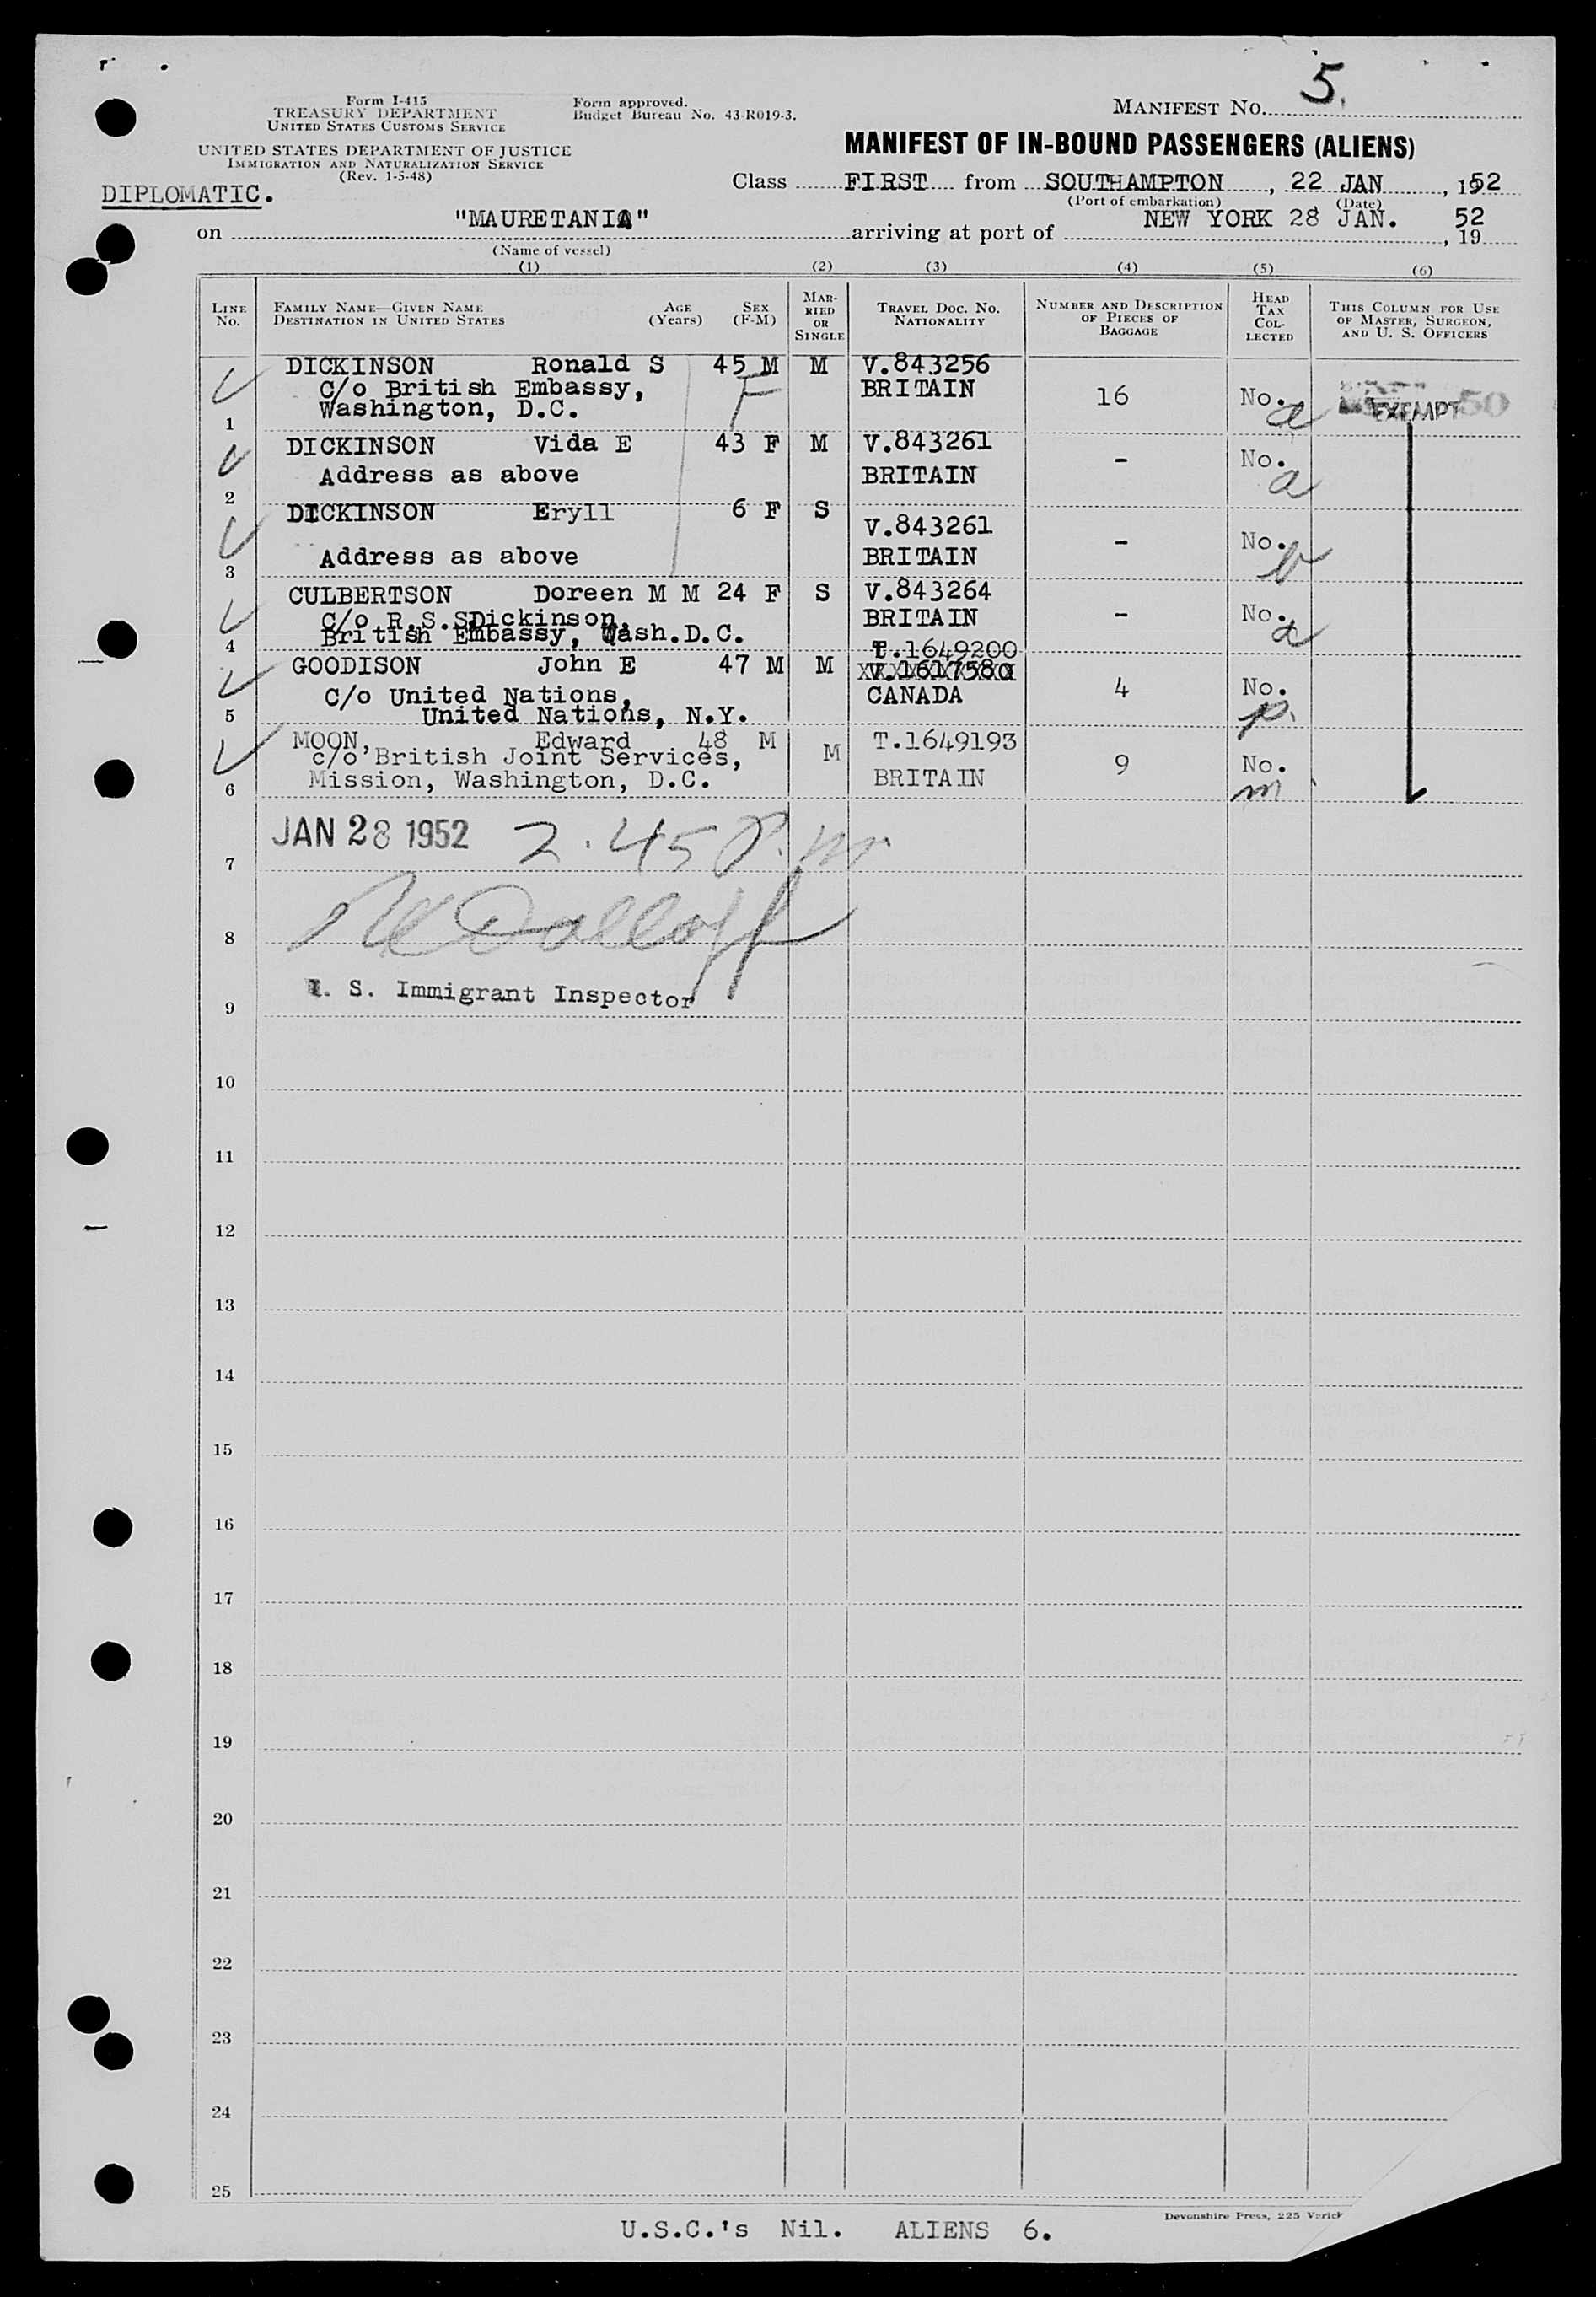 5.
Form I-415
TREASURY DEPARTMENT
UNITED STATES CUSTOMS SERVICE
Form approved.
Budget Bureau No. 43-R019-3.
MANIFEST NO.
UNITED STATES DEPARTMENT OF JUSTICE
IMMIGRATION AND NATURALIZATION SERVICE
(Rev. 1-5-48)
MANIFEST OF IN-BOUND PASSENGERS (ALIENS)
DIPLOMATIC.
Class FIRST from SOUTHAMPTON, 22 JAN, 1952
(Port of embarkation) (Date)
on "MAURETANIA" arriving at port of NEW YORK 28 JAN., 19 52
(Name of vessel)
(1) (2) (3) (4) (5) (6)
LINE No. FAMILY NAME—GIVEN NAME DESTINATION IN UNITED STATES AGE (Years) SEX (F-M) MARRIED OR SINGLE TRAVEL DOC. NO. NATIONALITY NUMBER AND DESCRIPTION OF PIECES OF BAGGAGE HEAD TAX COLLECTED THIS COLUMN FOR USE OF MASTER, SURGEON, AND U. S. OFFICERS
DICKINSON Ronald S 45 M M V.843256
C/o British Embassy, F BRITAIN 16 No. a EXEMPT 50
Washington, D.C.
1
DICKINSON Vida E 43 F M V.843261
Address as above BRITAIN - No. a
2
DICKINSON Eryll 6 F S
V.843261
Address as above BRITAIN - No.
3
CULBERTSON Doreen M M 24 F S V.843264
C/o R.S.SDickinson, BRITAIN - No. a
British Embassy, Wash.D.C.
4
T.1649200
GOODISON John E 47 M M V.1617580
C/o United Nations, CANADA 4 No. p.
United Nations, N.Y.
5
MOON, Edward 48 M M T.1649193
c/o British Joint Services, 9 No. m
Mission, Washington, D.C. BRITAIN
6
JAN 28 1952 2.45 P.m
7
8
. S. Immigrant Inspector
9
10
11
12
13
14
15
16
17
18
19
20
21
22
23
24
25
Devonshire Press, 225 Varick
U.S.C.'s Nil. ALIENS 6.